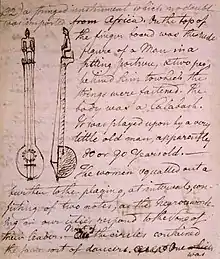 a stringed instrument which no doubt
was imported from Africa. On the top
of the finger board was the rude
figure of a Man in a
sitting posture, & two pegs
behind him to which the
strings were fastened. The
body was a Calabash.
It was played upon by a very
little old man, apparently
80 or 90 years old.
The women squalled out a
burthen to the playing, at intervals, con-
sisting of two notes, as the Negroes work-
ing in our cities respond to the Song of
their leader. Most of the circles contained
the same sort of dancers.